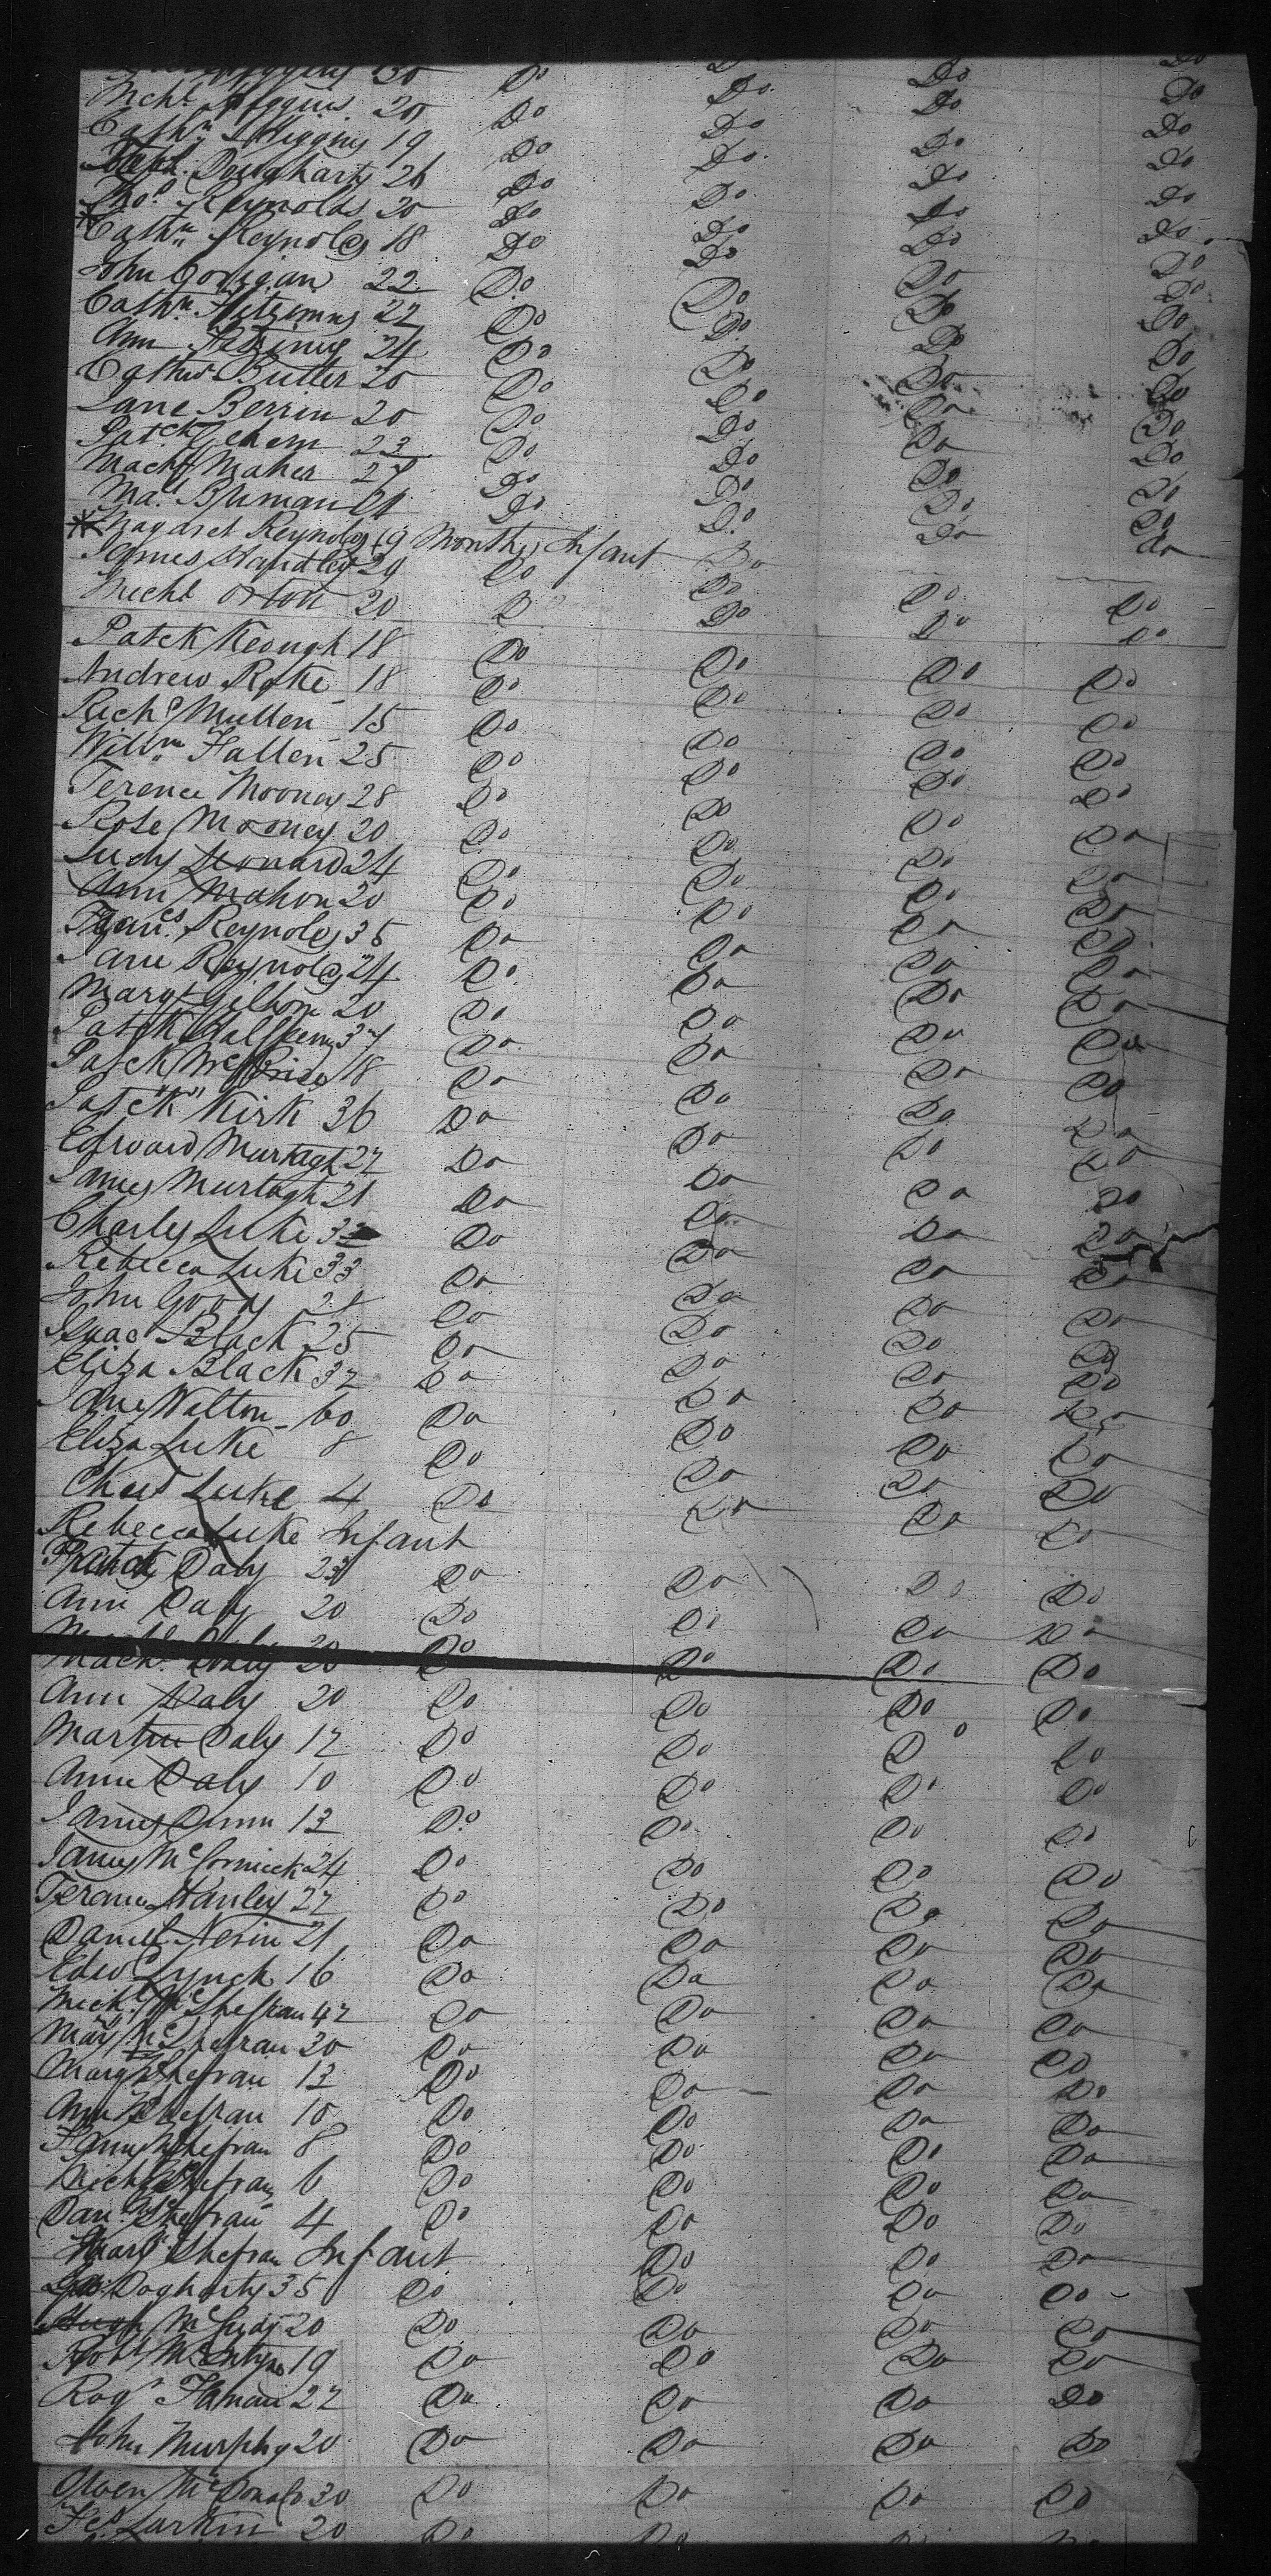 Higgins 30 Do Do Do Do
Michl Higgins 20 Do Do Do Do
Cathn Higgins 19 Do Do Do Do
Dougharty 26 Do Do Do Do
Thos Reynolds 20 Do Do Do Do
* Cathn Reynolds 18 Do Do Do Do
John Corrigan 22 Do Do Do Do
Cathn Fitzimns 22 Do Do Do Do
Ann Fitzimns 24 Do Do Do Do
Butler 20 Do Do Do Do
Jane Berrin 20 Do Do Do Do
Patck 23 Do Do Do Do
Maher 27 Do Do Do Do
21 Do Do Do Do
* Magaret Reynolds (9 Months) Infant Do Do do
James Handley 29 Do Do Do Do
Michl Orton 20 D Do Do Do
Patck Keough 18 Do Do Do Do
Andrew Roke 18 Do Do Do Do
Richd Mullen 15 Do Do Do Do
Willm Fallen 25 Do Do Do Do
Terence Mooney 28 Do Do Do Do
Rose Mooney 20 Do Do Do Do
Judy Leonard 24 Do Do Do Do
Ann Mahon 20 Do Do Do Do
Frans Reynolds 35 Do Do Do Do
Jane Reynolds 24 Do Do Do Do
Mary Gilbon 20 Do Do Do Do
Patck Halfpeny 37 Do Do Do Do
Patck McBride 18 Do Do Do Do
Patck Kirk 36 Do Do Do Do
Edward Murtagh 22 Do Do Do Do
James Murtagh 21 Do Do Do Do
Charles Luke 33 Do Do Do Do
Rebecca Luke 33 Do Do Do Do
John 28 Do Do Do Do
Isaac Black 25 Do Do Do Do
Eliza Black 32 Do Do Do Do
Jane Walton 60 Do Do Do Do
Eliza Luke 8 Do Do Do Do
Chas Luke 4 Do Do Do Do
Rebecca Luke Infant Do Do Do
Patck Daly 23 Do Do Do Do
Ann Daly 20 Do Do Do Do
Daly 20 Do Do Do Do
Ann Daly 20 Do Do Do Do
Martin Daly 12 Do Do Do Do
Ann Daly 10 Do Do Do Do
James Dunn 13 Do Do Do Do
James McCormick 24 Do Do Do Do
Terance Hanley 22 Do Do Do Do
Daniel Nerin 21 Do Do Do Do
Edwd Lynch 16 Do Do Do Do
Michl McShefran 42 Do Do Do Do
Mary McShefran 20 Do Do Do Do
Mary Shefran 13 Do Do Do Do
Ann McShefran 10 Do Do Do Do
McShefran 8 Do Do Do Do
Michl McShefran 6 Do Do Do Do
Danl McShefran 4 Do Do Do Do
Mary Shefran Infant Do Do Do
Dogharty 35 Do Do Do Do
Hugh 20 Do Do Do Do
Robt McEntyre 19 Do Do Do Do
Rogr Hanan 22 Do Do Do Do
John Murphy 20 Do Do Do Do
Owen McDonald 30 Do Do Do Do
Larkin 20 Do Do Do Do